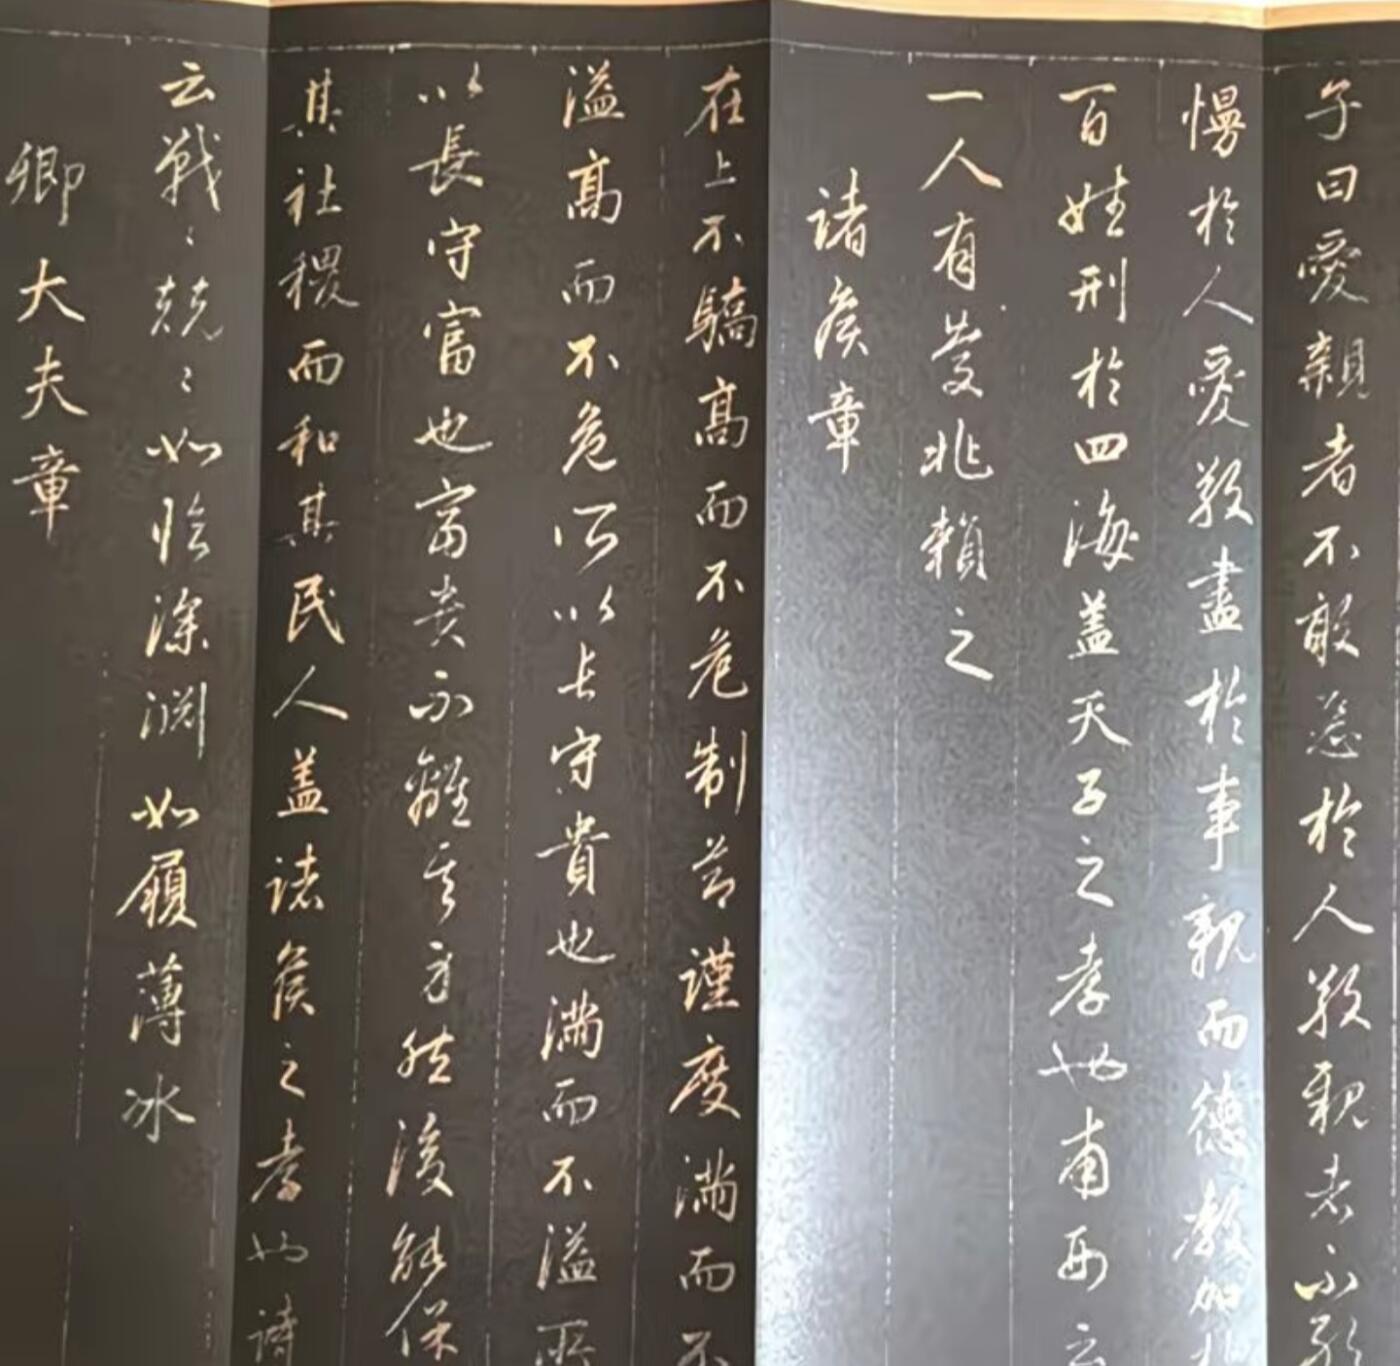 子曰愛親者不敢惡於人敬親者不敢
慢於人愛敬盡於事親而德教加於
百姓刑於四海蓋天子之孝也甫刑云
一人有慶兆賴之
諸侯章
在上不驕高而不危制節謹度滿而不
溢高而不危所以長守貴也滿而不溢所
以長守富也富貴不離其身然後能保
其社稷而和其民人蓋諸侯之孝也詩
云戰〻兢〻如臨深淵如履薄冰
卿大夫章